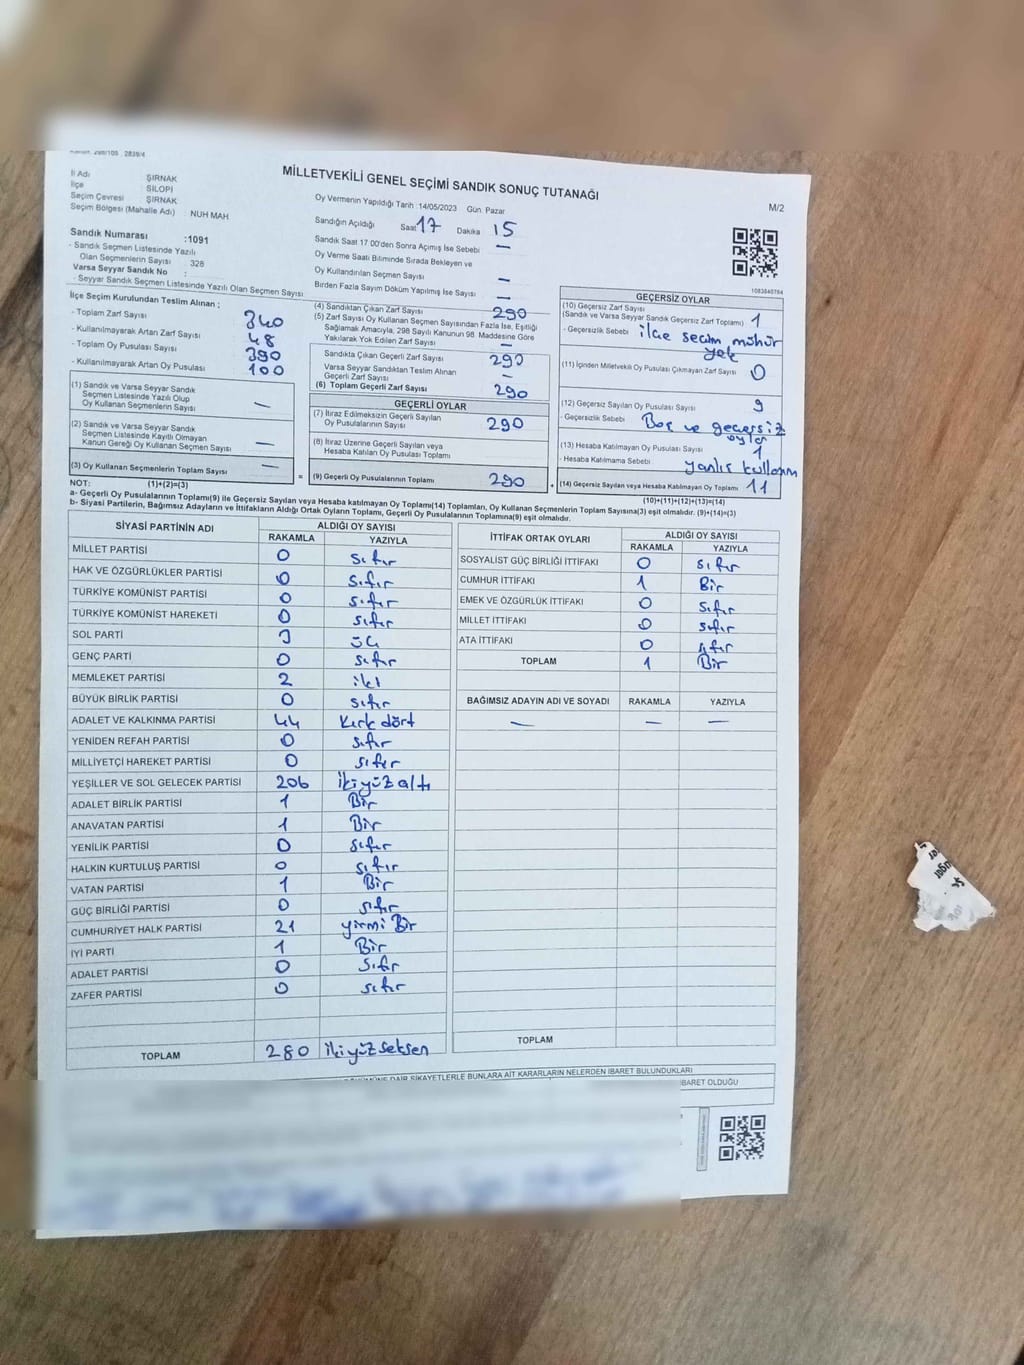 MİLLETVEKİLİ GENEL SEÇİMİ SANDIK SONUÇ TUTANAĞI
M/2
İl Adı ŞIRNAK
İlçe SİLOPİ
Seçim Çevresi ŞIRNAK
Seçim Bölgesi (Mahalle Adı) : NUH MAH
Sandık Numarası :1091
- Sandık Seçmen Listesinde Yazılı
Olan Seçmenlerin Sayısı : 328
Varsa Seyyar Sandık No :
- Seyyar Sandık Seçmen Listesinde Yazılı Olan Seçmen Sayısı
Oy Vermenin Yapıldığı Tarih :14/05/2023 Gün Pazar
Sandığın Açıldığı Saat 17 Dakika 15
Sandık Saat 17 00'den Sonra Açımış İse Sebebi —
Oy Verme Saati Bitiminde Sırada Bekleyen ve
Oy Kullandırılan Seçmen Sayısı —
Birden Fazla Sayım Döküm Yapılmış İse Sayısı —
1083840764
İlçe Seçim Kurulundan Teslim Alınan ;
- Toplam Zarf Sayısı 340
- Kullanılmayarak Artan Zarf Sayısı 48
- Toplam Oy Pusulası Sayısı 390
- Kullanılmayarak Artan Oy Pusulası 100
(1) Sandık ve Varsa Seyyar Sandık
Seçmen Listesinde Yazılı Olup
Oy Kullanan Seçmenlerin Sayısı —
(2) Sandık ve Varsa Seyyar Sandık
Seçmen Listesinde Kayıtlı Olmayan
Kanun Gereği Oy Kullanan Seçmen Sayısı —
(3) Oy Kullanan Seçmenlerin Toplam Sayısı —
(4) Sandıktan Çıkan Zarf Sayısı 290
(5) Zarf Sayısı Oy Kullanan Seçmen Sayısından Fazla İse, Eşitliği
Sağlamak Amacıyla, 298 Sayılı Kanunun 98. Maddesine Göre
Yakılarak Yok Edilen Zarf Sayısı —
Sandıkta Çıkan Geçerli Zarf Sayısı 290
Varsa Seyyar Sandıktan Teslim Alınan
Geçerli Zarf Sayısı —
(6) Toplam Geçerli Zarf Sayısı 290
GEÇERLİ OYLAR
(7) İtiraz Edilmeksizin Geçerli Sayılan
Oy Pusulalarının Sayısı 290
(8) İtiraz Üzerine Geçerli Sayılan veya
Hesaba Katılan Oy Pusulaları Toplamı
= (9) Geçerli Oy Pusulalarının Toplamı 290 +
GEÇERSİZ OYLAR
(10) Geçersiz Zarf Sayısı
(Sandık ve Varsa Seyyar Sandık Geçersiz Zarf Toplamı) 1
- Geçersizlik Sebebi ilçe seçim mühür
yok
(11) İçinden Milletvekili Oy Pusulası Çıkmayan Zarf Sayısı 0
(12) Geçersiz Sayılan Oy Pusulası Sayısı 9
- Geçersizlik Sebebi Boş ve geçersiz
oylar
(13) Hesaba Katılmayan Oy Pusulası Sayısı 1
- Hesaba Katılmama Sebebi yanlış kullanım
(14) Geçersiz Sayılan veya Hesaba Katılmayan Oy Toplamı 11
NOT: (1)+(2)=(3)
(10)+(11)+(12)+(13)=(14)
a- Geçerli Oy Pusulalarının Toplamı(9) ile Geçersiz Sayılan veya Hesaba katılmayan Oy Toplamı(14) Toplamları, Oy Kullanan Seçmenlerin Toplam Sayısına(3) eşit olmalıdır. (9)+(14)=(3)
b- Siyasi Partilerin, Bağımsız Adayların ve İttifakların Aldığı Ortak Oyların Toplamı, Geçerli Oy Pusulalarının Toplamına(9) eşit olmalıdır.
SİYASİ PARTİNİN ADI ALDIĞI OY SAYISI
RAKAMLA YAZIYLA
MİLLET PARTİSİ 0 sıfır
HAK VE ÖZGÜRLÜKLER PARTİSİ 0 sıfır
TÜRKİYE KOMÜNİST PARTİSİ 0 sıfır
TÜRKİYE KOMÜNİST HAREKETİ 0 sıfır
SOL PARTİ 3 üç
GENÇ PARTİ 0 sıfır
MEMLEKET PARTİSİ 2 iki
BÜYÜK BİRLİK PARTİSİ 0 sıfır
ADALET VE KALKINMA PARTİSİ 44 kırk dört
YENİDEN REFAH PARTİSİ 0 sıfır
MİLLİYETÇİ HAREKET PARTİSİ 0 sıfır
YEŞİLLER VE SOL GELECEK PARTİSİ 206 ikiyüz altı
ADALET BİRLİK PARTİSİ 1 Bir
ANAVATAN PARTİSİ 1 Bir
YENİLİK PARTİSİ 0 sıfır
HALKIN KURTULUŞ PARTİSİ 0 sıfır
VATAN PARTİSİ 1 Bir
GÜÇ BİRLİĞİ PARTİSİ 0 sıfır
CUMHURİYET HALK PARTİSİ 21 yirmi Bir
İYİ PARTİ 1 Bir
ADALET PARTİSİ 0 sıfır
ZAFER PARTİSİ 0 sıfır
TOPLAM 280 ikiyüz seksen
İTTİFAK ORTAK OYLARI ALDIĞI OY SAYISI
RAKAMLA YAZIYLA
SOSYALİST GÜÇ BİRLİĞİ İTTİFAKI 0 sıfır
CUMHUR İTTİFAKI 1 Bir
EMEK VE ÖZGÜRLÜK İTTİFAKI 0 sıfır
MİLLET İTTİFAKI 0 sıfır
ATA İTTİFAKI 0 sıfır
TOPLAM 1 Bir
BAĞIMSIZ ADAYIN ADI VE SOYADI RAKAMLA YAZIYLA
— — —
TOPLAM
DAİR ŞİKAYETLERLE BUNLARA AİT KARARLARIN NELERDEN İBARET BULUNDUKLARI
İBARET OLDUĞU